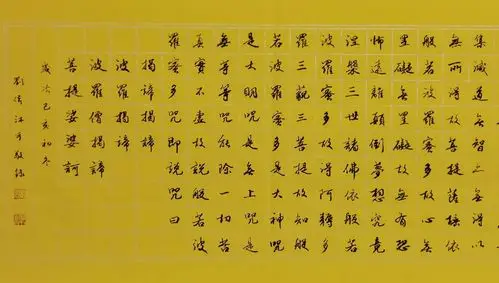 集滅道無智亦無得以
無所得故菩提薩埵依
般若波羅蜜多故心無
罣礙無罣礙故無有恐
怖遠離顛倒夢想究竟
涅槃三世諸佛依般若
波羅蜜多故得阿耨多
羅三藐三菩提故知般
若波羅蜜多是大神咒
是大明咒是無上咒是
無等等咒能除一切苦
真實不虛故說般若波
羅蜜多咒即說咒曰
揭諦揭諦
波羅揭諦
波羅僧揭諦
菩提娑婆訶
歲次己亥初冬
劉 敬錄